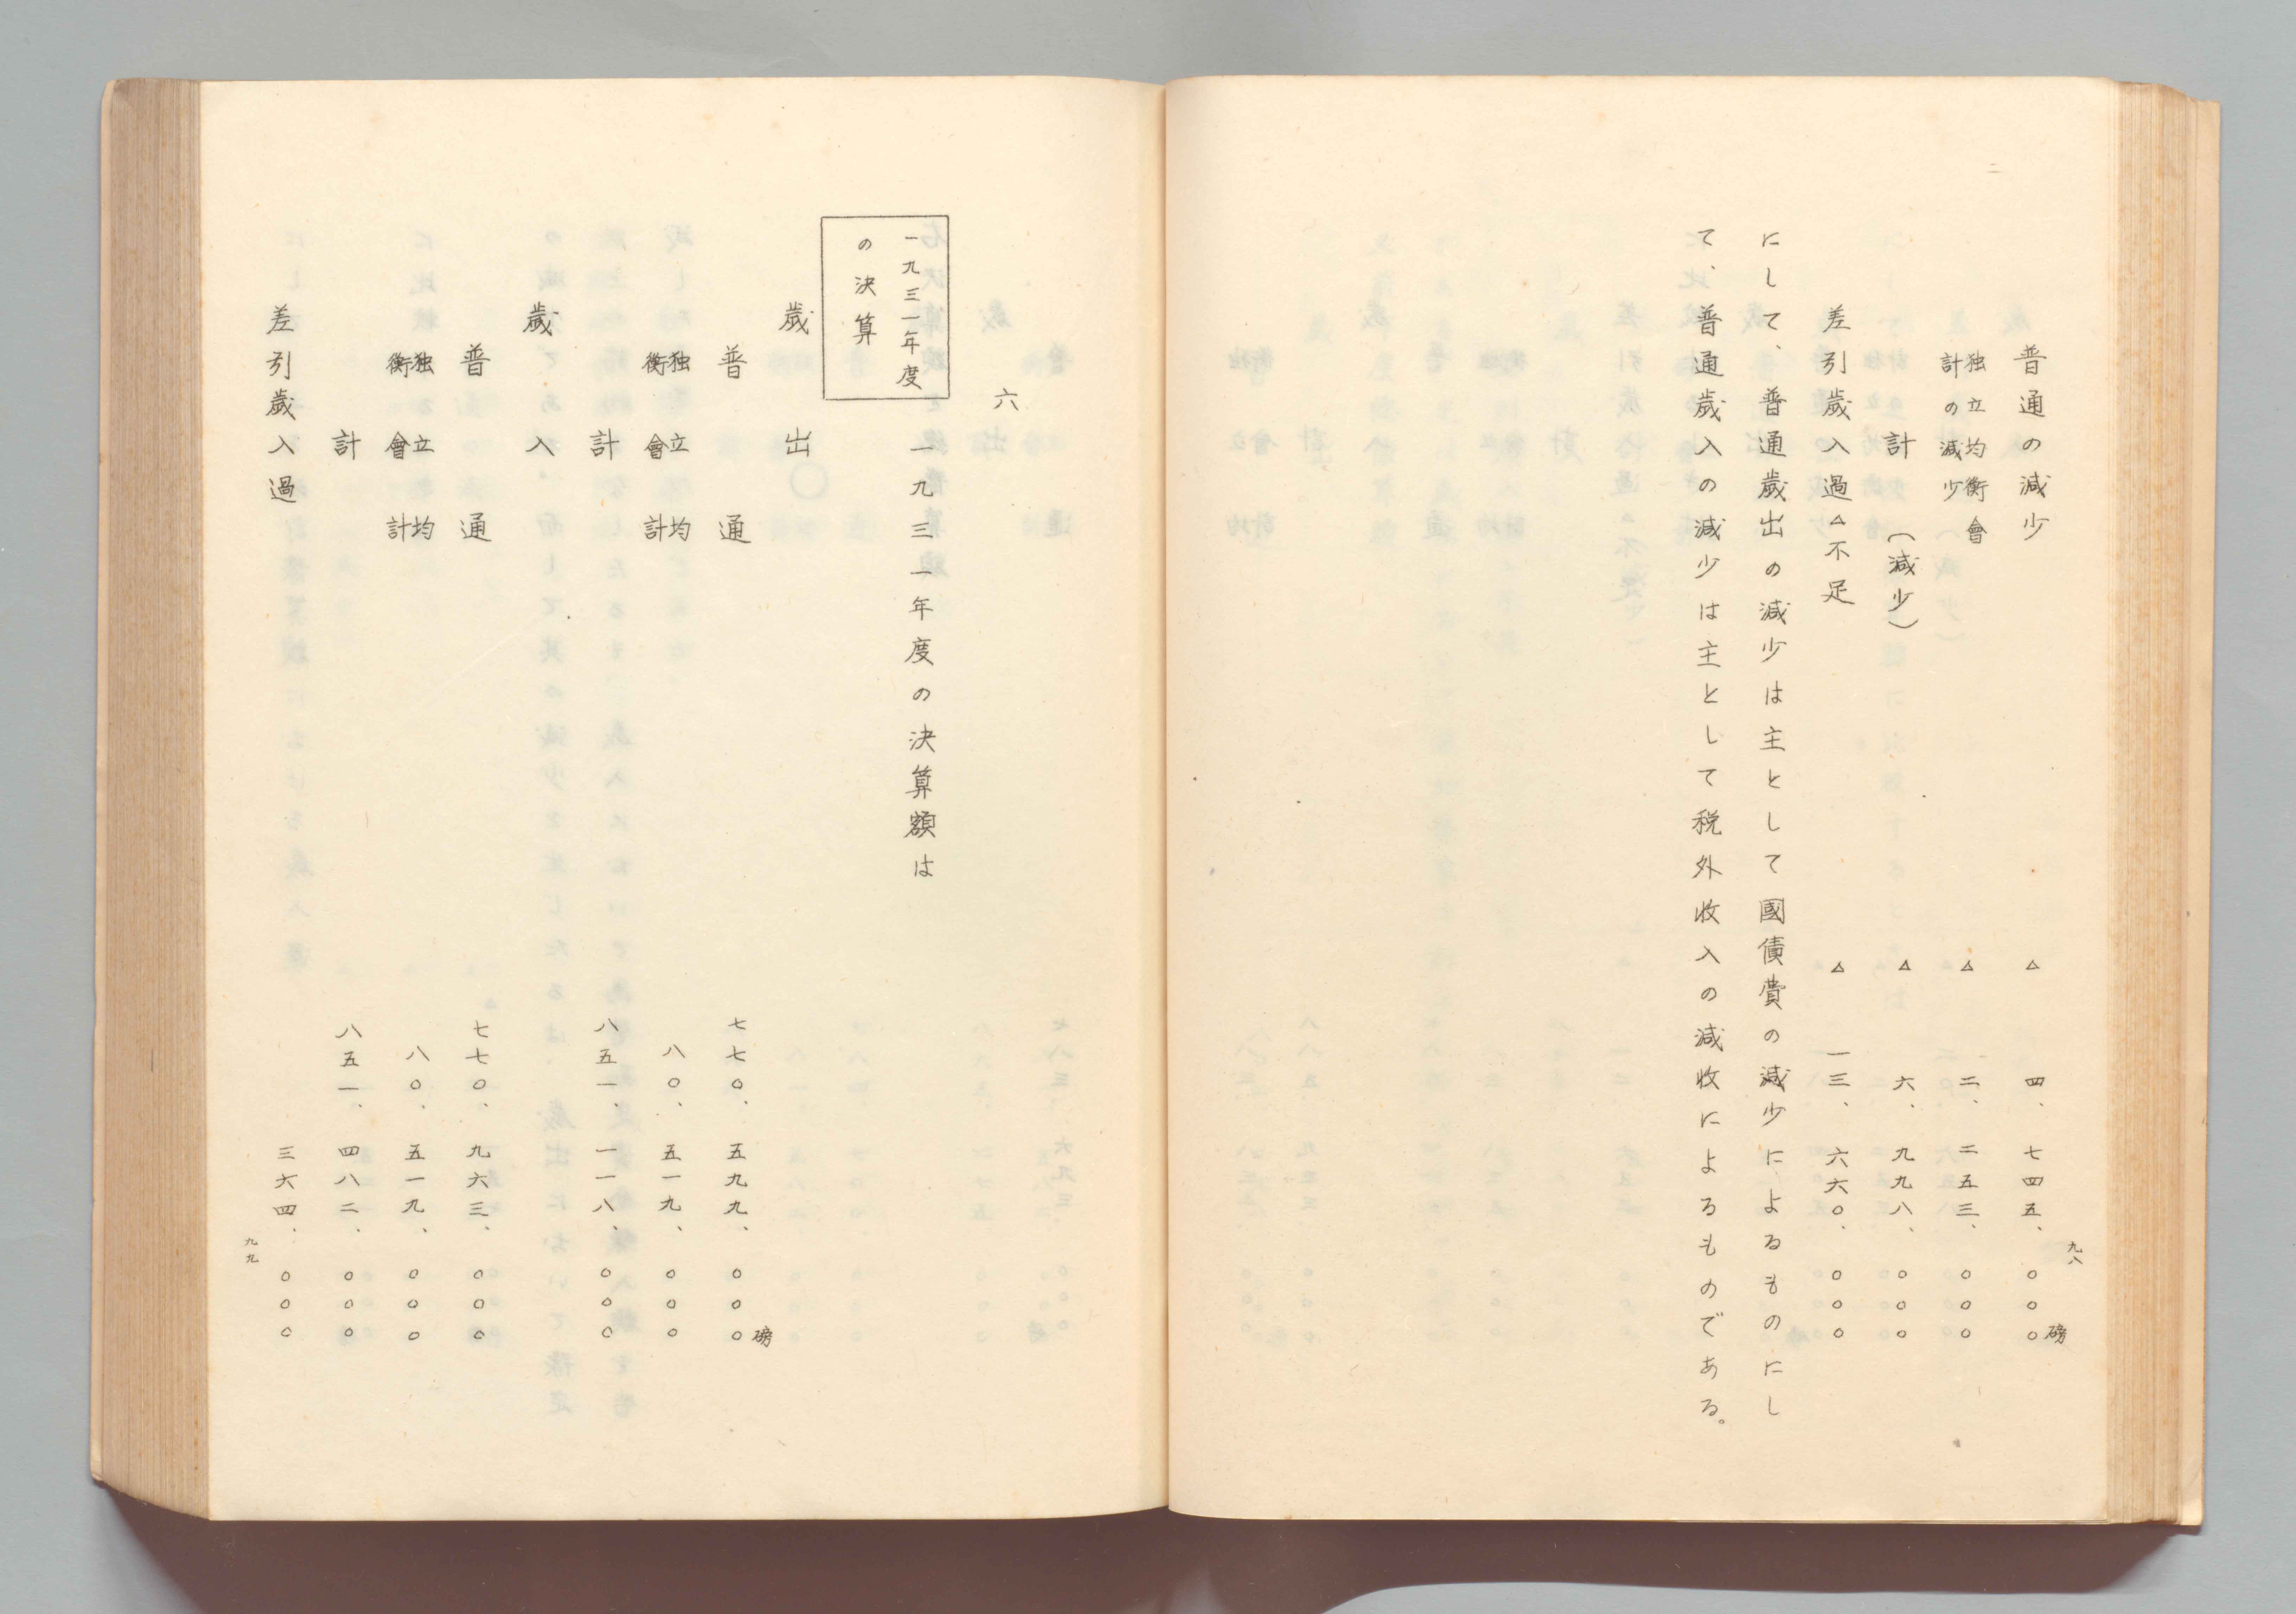 普通の減少　△　四、七四五、〇〇〇磅
独立均衡會計の減少　△　二、二五三、〇〇〇
計（減少）　△　六、九九八、〇〇〇
差引歲入過△不足　△　一三、六六〇、〇〇〇
にして、普通歲出の減少は主として國債費の減少によるものにし
て、普通歲入の減少は主として税外收入の減收によるものである。
九八
六
一九三一年度の決算
一九三一年度の決算額は
歲出
普通　七七〇、五九九、〇〇〇磅
独立均衡會計　八〇、五一九、〇〇〇
計　八五一、一一八、〇〇〇
歲入
普通　七七〇、九六三、〇〇〇
独立均衡會計　八〇、五一九、〇〇〇
計　八五一、四八二、〇〇〇
差引歲入過　三六四、〇〇〇
九九